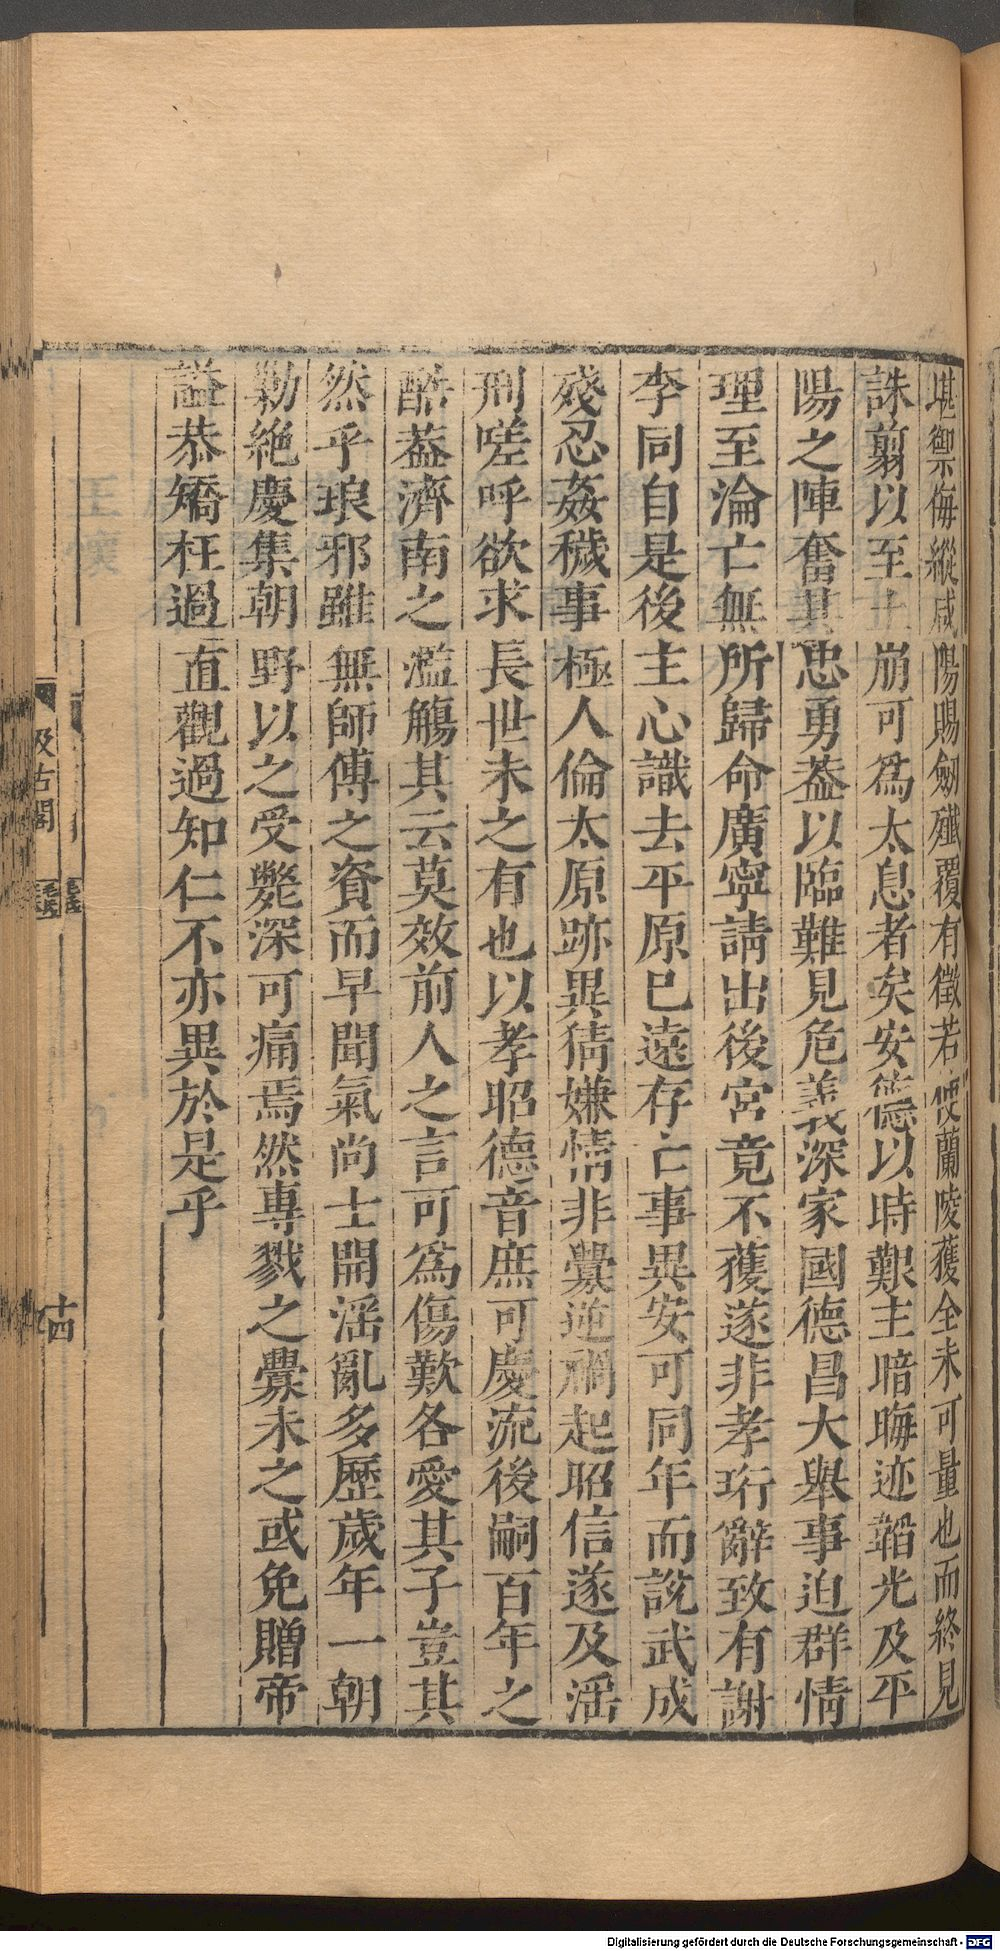 堪禦侮縱咸陽賜劒殲覆有徵若使蘭陵獲全未可量也而終見
誅翦以至土崩可爲太息者矣安德以時艱主暗晦迹韜光及平
陽之陣奮其忠勇葢以臨難見危義深家國德昌大舉事迫群情
理至淪亡無所歸命廣寧請出後宮竟不獲遂非孝珩辭致有謝
李同自是後主心識去平原已遠存亡事異安可同年而說武成
殘忍姦穢事極人倫太原跡異猜嫌情非釁逆禍起昭信遂及淫
刑嗟呼欲求長世未之有也以孝昭德音庶可慶流後嗣百年之
酷葢濟南之濫觴其云莫效前人之言可爲傷歎各愛其子豈其
然乎琅邪雖無師傅之資而早聞氣尚士開淫亂多歷歲年一朝
勦絶慶集朝野以之受斃深可痛焉然專戮之釁未之或免贈帝
諡恭矯枉過直觀過知仁不亦異於是乎
汲古閣
毛氏
十四
Digitalisierung gefördert durch die Deutsche Forschungsgemeinschaft - DFG